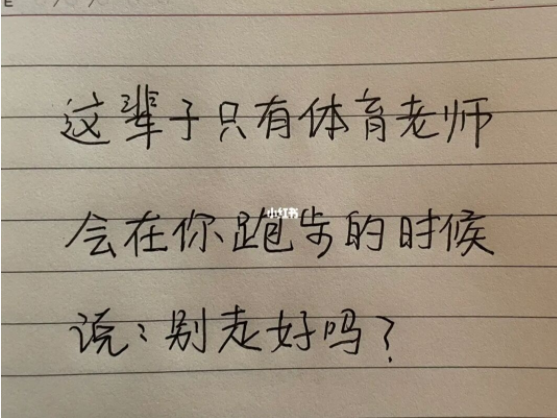 这辈子只有体育老师
小红书
会在你跑步的时候
说：别走好吗？